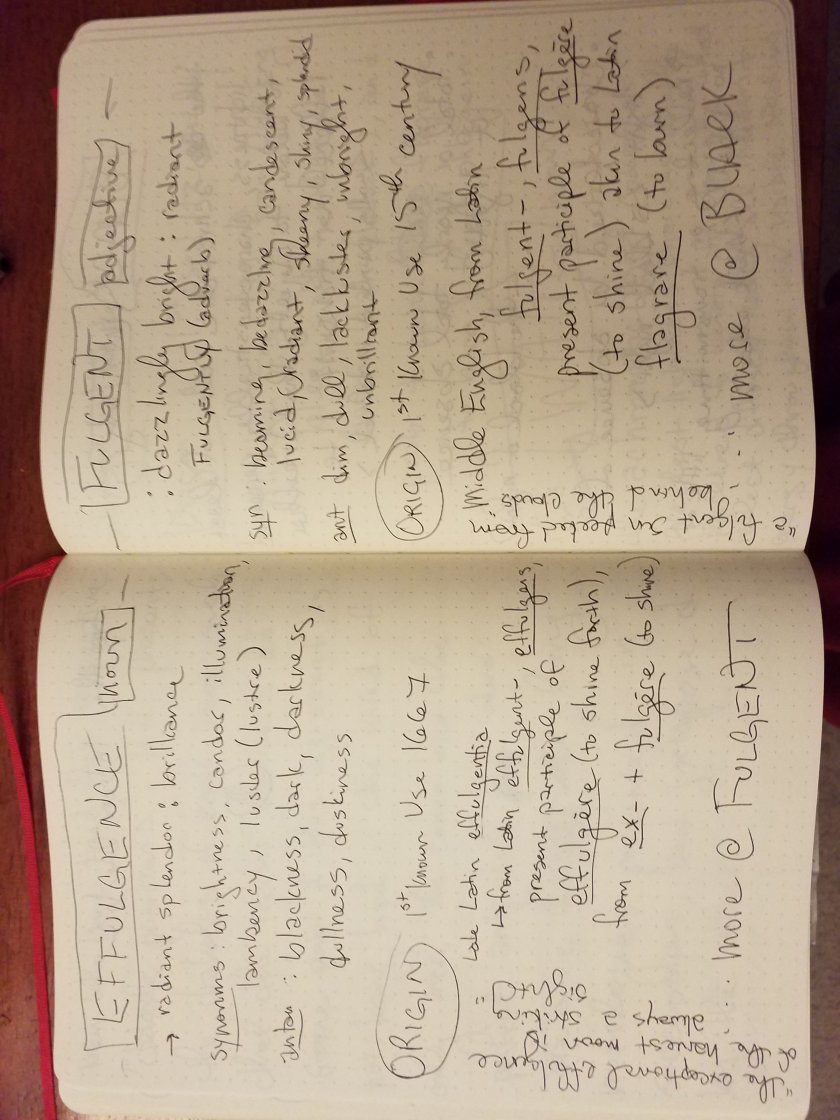 EFFULGENCE noun
→ radiant splendor : brilliance
synonyms : brightness, candor, illumination,
lambency, luster (lustre)
anton : blackness, dark, darkness,
dullness, duskiness
ORIGIN 1st Known Use 1667
Late Latin effulgentia
→ from Latin effulgent-, effulgens,
present participle of
effulgēre (to shine forth),
from ex- + fulgēre (to shine)
... more @ FULGENT
"the exceptional effulgence
of the harvest moon is
always a striking
sight"
— FULGENT adjective —
: dazzlingly bright : radiant
FULGENTLY (adverb)
syn : beaming, bedazzling, candescent,
lucid, radiant, sheeny, shiny, splendid
ant dim, dull, lackluster, unbright,
unbrilliant
ORIGIN 1st Known Use 15th century
Middle English, from Latin
fulgent-, fulgens,
present participle of fulgēre
(to shine) akin to Latin
flagrare (to burn)
... more @ BLACK
"a fulgent sun
peeked from
behind the clouds